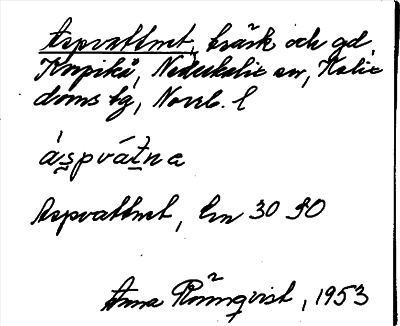 Aspvattnet, träsk och gd,
Korpikå, Nederkalix sn, Kalix
doms tg, Norrb. l
áspvát̀na
Aspvattnet, En 30 SO
Anna Rönnqvist, 1953